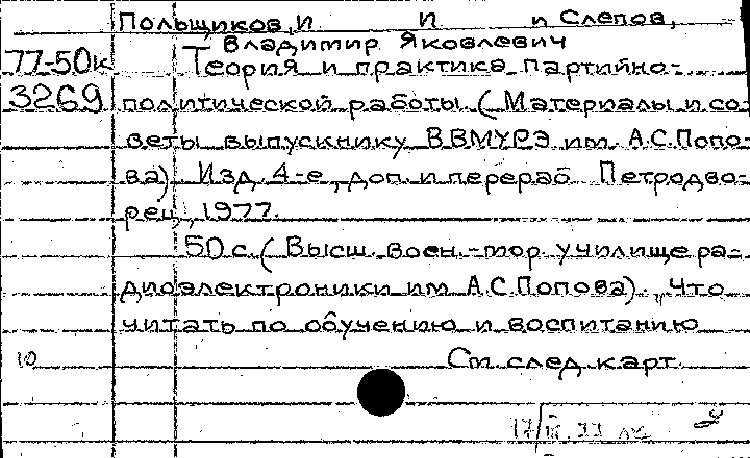 Польщиков, И И и Слепов,
Владимир Яковлевич
77-50к Теория и практика партийно-
3269 политической работы. (Материалы и со
веты выпускнику ВВМУРЭ им. А.С. Попо-
ва). Изд. 4-е, доп. и перераб. Петродво-
рец, 1977.
50 с. (Высш. воен.-мор. училище ра-
диоэлектроники им А.С. Попова). Что
читать по обучению и воспитанию
10 См. след. карт.